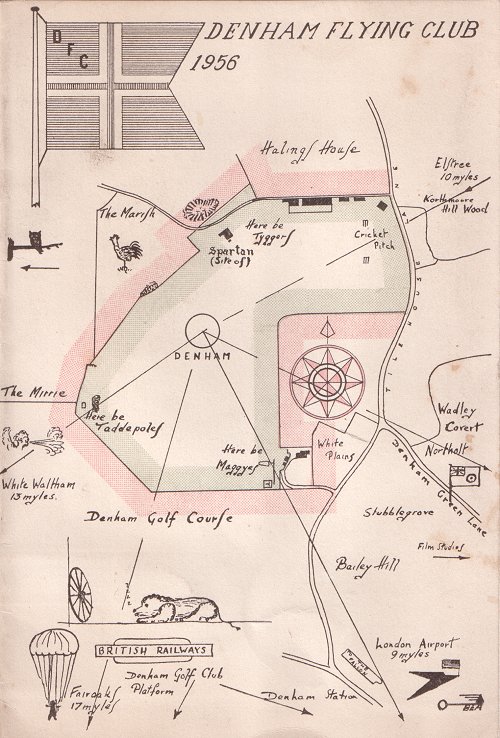 DENHAM FLYING CLUB
1956
DFC
Halings House
Elstree
10 myles
Northmoore
Hill Wood
The Marish
Here be
Tyggers
Spartan
(Site of)
Cricket
Pitch
TILEHOUSE LANE
DENHAM
The Mirrie
Here be
Taddepoles
Wadley
Covert
Northolt
White Waltham
13 myles.
Here be
Magoyes
White
Plains
Denham Green Lane
Denham Golf Course
Stubblegrove
Film Studios
Bailey Hill
BRITISH RAILWAYS
London Airport
9 myles
Denham Golf Club
Platform
Fairoaks
17 myles
Denham Station
BEA